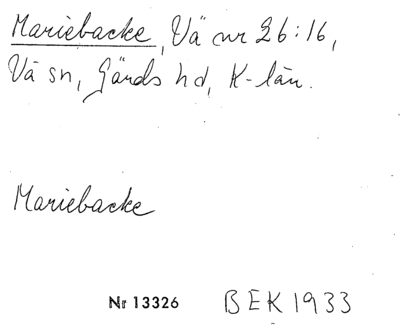 Mariebacke, Vä nr 26:16,
Vä sn, Gärds hd, K-län.
Mariebacke
Nr 13326 BEK 1933